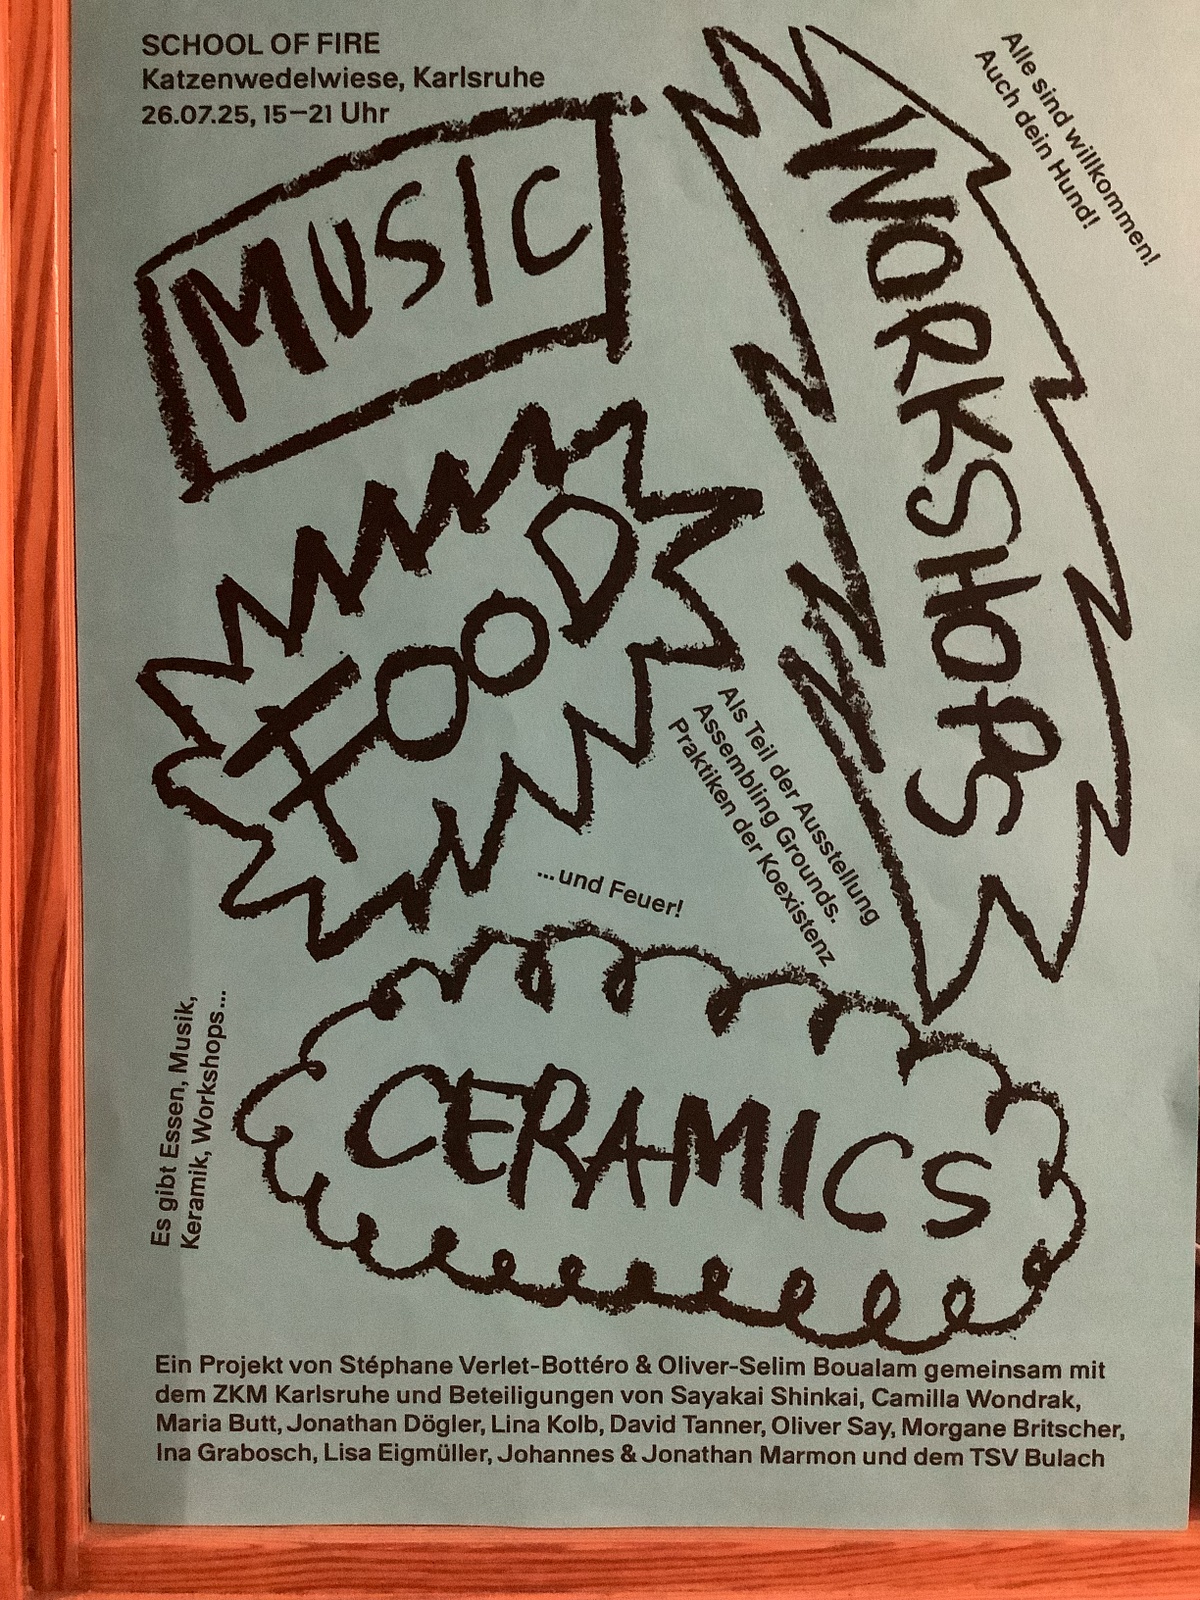 SCHOOL OF FIRE
Katzenwedelwiese, Karlsruhe
26.07.25, 15–21 Uhr
Alle sind willkommen!
Auch dein Hund!
MUSIC
WORKSHOPS
FOOD
Als Teil der Ausstellung
Assembling Grounds.
Praktiken der Koexistenz
...und Feuer!
Es gibt Essen, Musik,
Keramik, Workshops...
CERAMICS
Ein Projekt von Stéphane Verlet-Bottéro & Oliver-Selim Boualam gemeinsam mit
dem ZKM Karlsruhe und Beteiligungen von Sayakai Shinkai, Camilla Wondrak,
Maria Butt, Jonathan Dögler, Lina Kolb, David Tanner, Oliver Say, Morgane Britscher,
Ina Grabosch, Lisa Eigmüller, Johannes & Jonathan Marmon und dem TSV Bulach